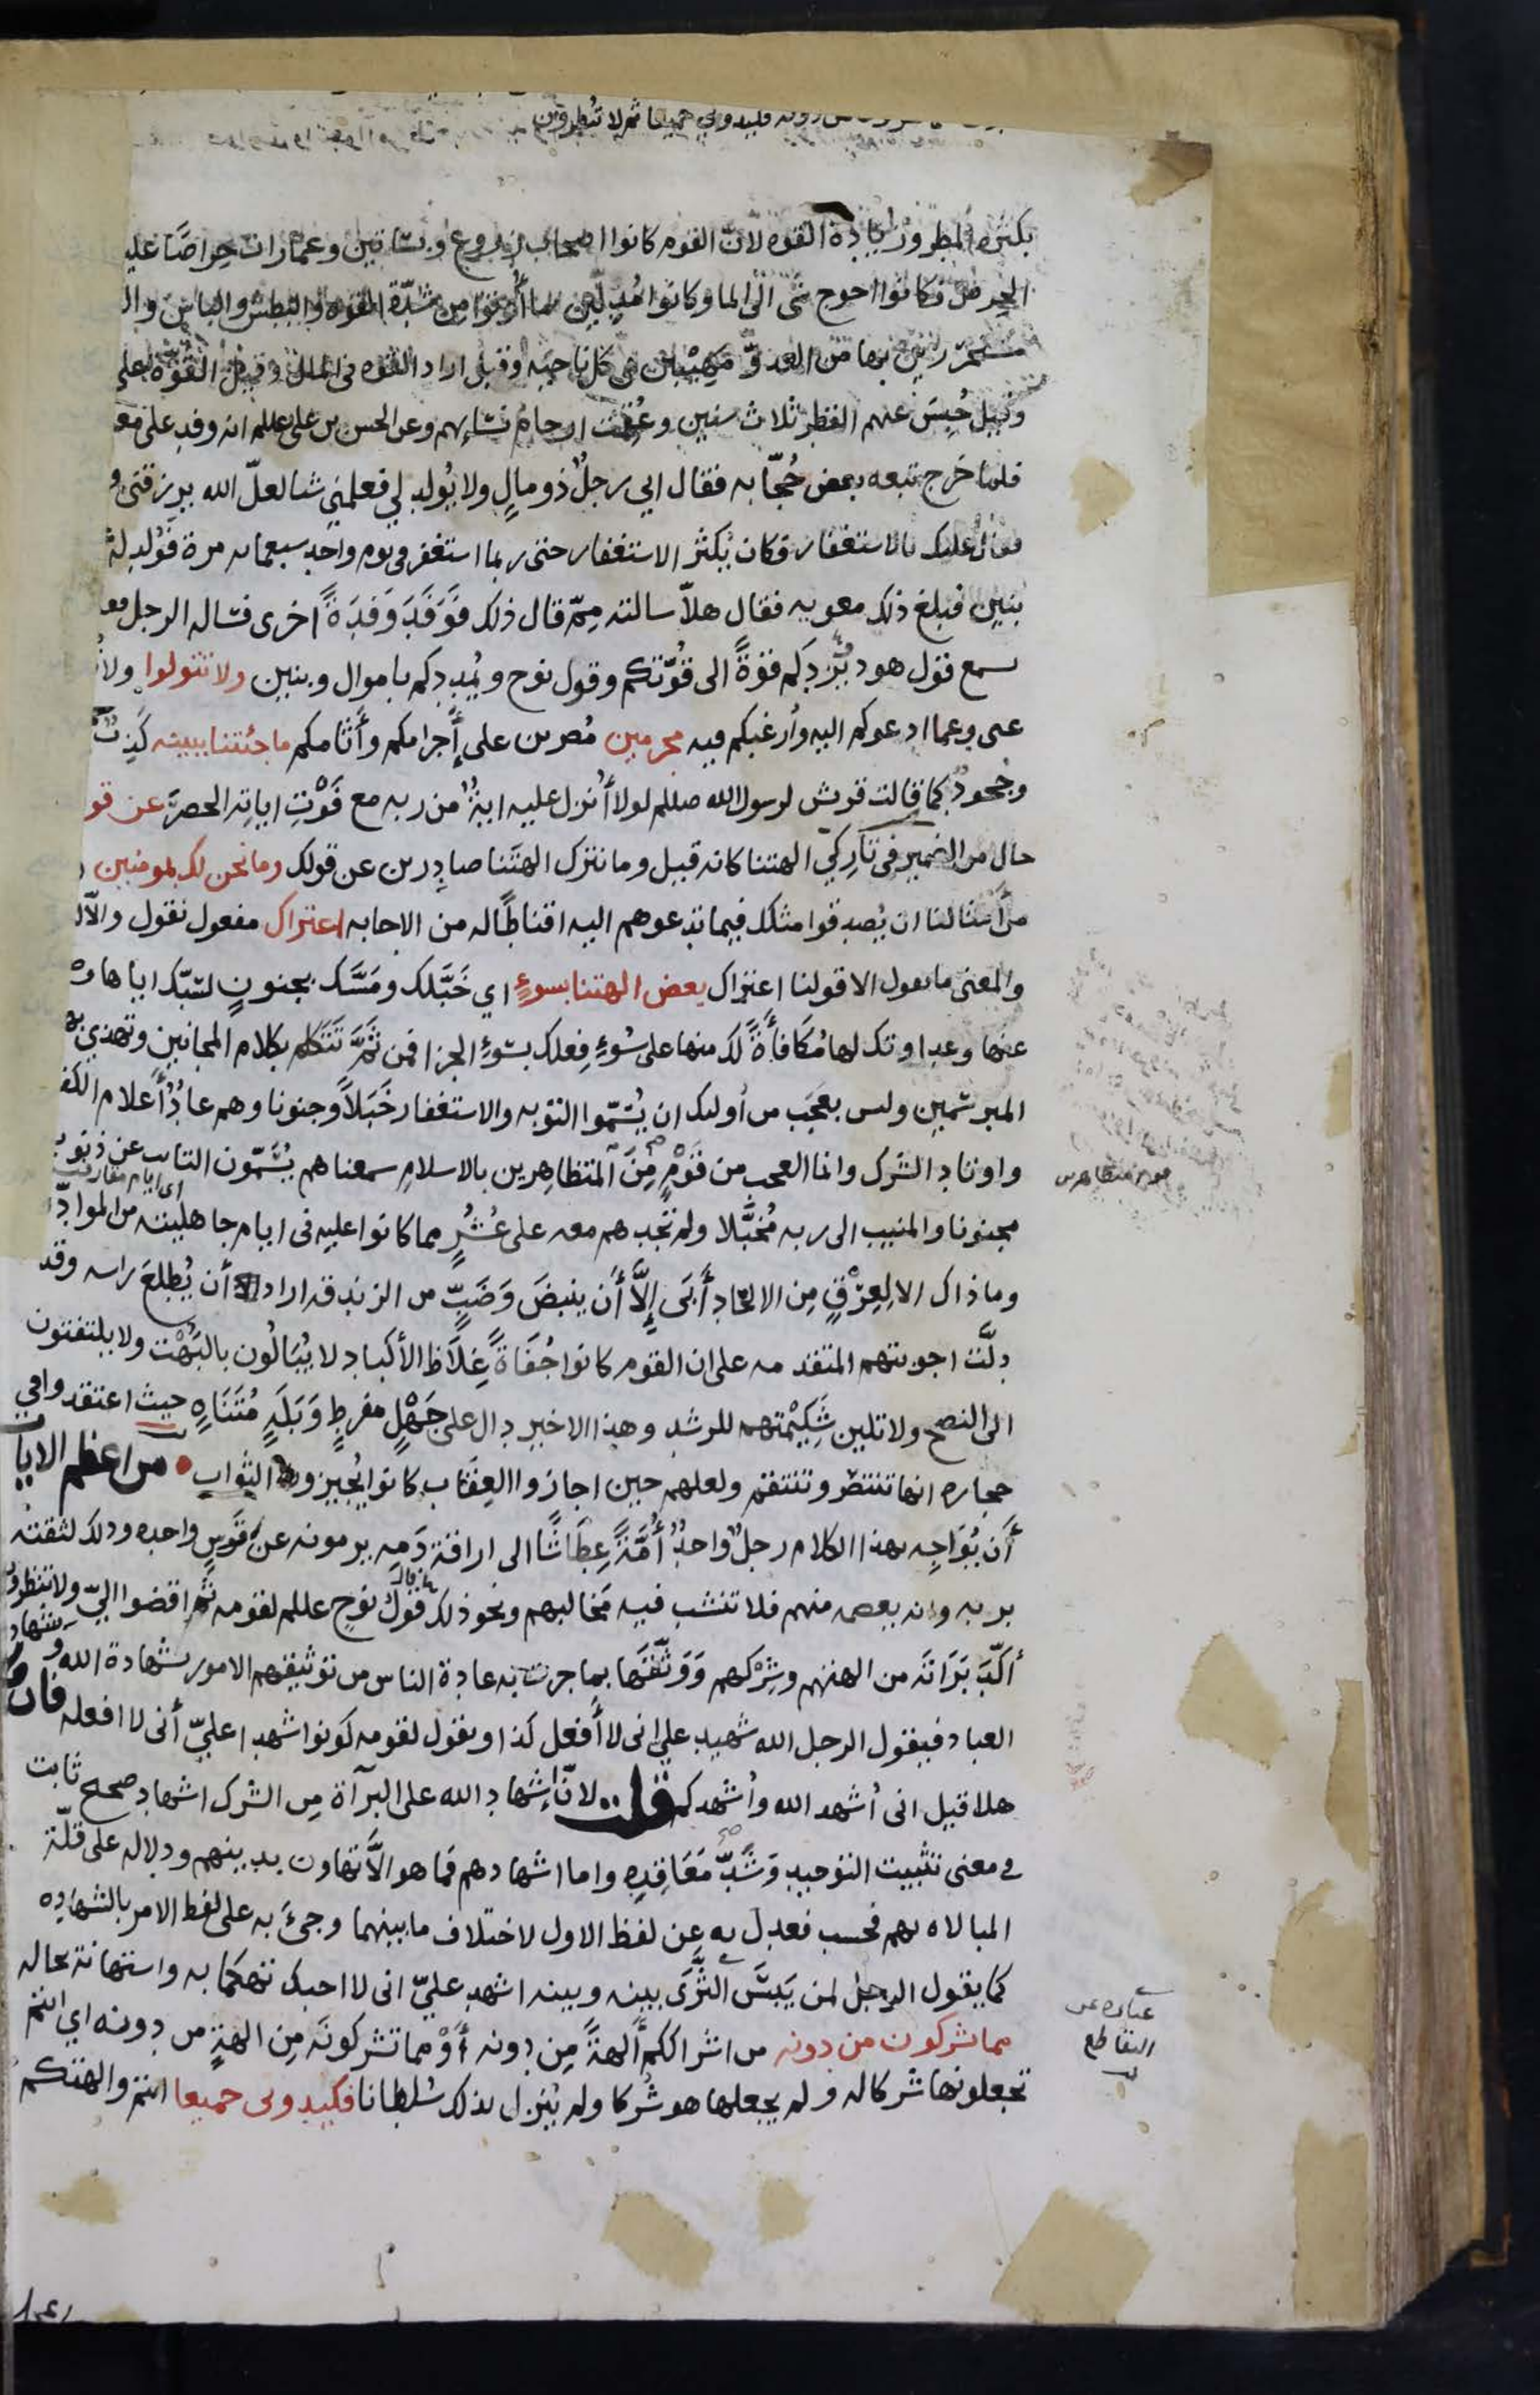 دونه فكيدوني جميعا ثم لا تنظرون
بكثره المطر وزيادة القوه لان القوم كانوا اصحاب زروع وبساتين وعمارات حراصًا عليـ
الحرص فكانوا احوج شى الى الما وكانوا مُدلّين بما أُوتوا من شدّة القوه والبطش والباس والـ
بها من العدوّ مَهِيبين فى كل ناحيه وقيل اراد القوه فى المال وقيل القوّه على
وقيل حُبِسَ عنهم القطر ثلاث سنين وعُقِمت ارحام نسايهم وعن الحسن بن على عللم انه وفد على معو
فلما خرج تبعه بعض حُجّابه فقال اني رجلٌ ذو مالٍ ولا يُولد لي فعلمني شيا لعلّ الله يرزقني و
فقال عليك بالاستغفار فكان يُكثر الاستغفار حتى ربما استغفر فى يوم واحد سبعمايه مرة فوُلد له
بنين فبلغ ذلك معويه فقال هلّا سالته مِمّ قال ذلك فَوَفَدَ وَفدَةً اخرى فساله الرجل فقا
سمع قول هود يَزِدكم قوةً الى قُوّتكم وقول نوح ويُمددكم باموال وبنين ولا تتولوا ولا
عنى وعما ادعوكم اليه وأرغبكم فيه مجرمين مصرين على إجرامكم وأثامكم ما جئتنا ببينه كَذِبٌ
وجحودٌ كما قالت قريش لرسول الله صللم لولا أُنزل عليه ايةٌ من ربه مع فَوْتِ اياتِه الحصرَ عن قو
حال من الضمير فى تاركي الهتنا كانه قيل وما نترك الهتَنا صادِرين عن قولك وما نحن لك بمومنين
من أمثالنا ان يُصدقوا مثلك فيما تدعوهم اليه اقناطًا له من الاجابه اعتراك مفعول نقول والّا
والمعنى ما نقول الا قولنا اعتراك بعض الهتنا بسوءٍ اي خَبَّلك ومَسَّك بجنونٍ لسَبّك اياها و
عنها وعداوتك لها مُكَافأَةً لك منها على سُوءِ فِعلك بسُوءِ الجزا فمن ثَمَّ تَتَكلم بكلام المجانين وتهذي
المبرسمين وليس بعجَب من أوليك ان يُسَمّوا التوبه والاستغفار خَبَلاً وجنونا وهم عادٌ أعلام الكفـ
واوتاد الشرك وانما العجب من قَوْمٍ مِنَ المتظاهِرين بالاسلامِ سمعناهم يُسَمّون التايب عن ذنوبـ
اى ايام
مجنونا والمنيب الى ربه مُخبَّلا ولم نجدهم معه على عُشُرٍ مما كانوا عليه فى ايام جاهليته من الموادّ
وما ذاك الا لِعِرْقٍ مِن الالحاد أَبَى إلَّا أن ينبضَ وَضَبٍّ من الزندقه اراد أن يُطلعَ راسه وقد
دلَّت اجوبتهم المتقدمه على ان القوم كانوا جُفَاةً غِلَاظ الأكباد لا يُبَالُون بالبَهْت ولا يلتفتون
الى النصح ولا تلين شَكِيمَتهم للرشد وهذا الاخير دال على جَهْلٍ مفرطٍ وَبَلَهٍ مُتَنَاهٍ حيث اعتقدوا في
حجاره انها تنتصر وتنتقم ولعلهم حين اجازوا العِقَاب كانوا يُجيزون الثواب • من اعظم الايات
أَن يُوَاجِه بهذا الكلام رجلٌ واحدٌ أُمَّةً عِطَاشًا الى اراقة دَمِه يرمونه عن قَوسٍ واحده وذلك لثقته
بربه وانه يعصمه منهم فلا تنشب فيه مَخالبهم ونحو ذلك قول نوح عللم لقومه ثم اقضوا اليّ ولا تنظرون
أكّدَ بَرَاتَه من الهتهم وشِرْكهم وَوَثَّقَها بما جرت به عادة الناس من توثيقهم الامور بشهادة الله وشهادة
العباد فيقول الرجل الله شهيد على انى لا أفعل كذا ويقول لقومه كونوا شهدا عليّ أنى لا افعله فان
هلا قيل انى أُشهد الله وأُشهدكم قلت لانّ إشهاد الله على البرآة مِن الشرك اشهاد صحيح ثابت
فى معنى تثبيت التوحيد وَشَدِّ مَعَاقِدِه واما اشهادهم فما هو الَّا تهاون بدينهم ودلاله على قلّة
المبالاه بهم فحسب فعدل به عن لفظ الاول لاختلاف ما بينهما وجئَ به على لفظ الامر بالشهاده
كما يقول الرجل لمن يَبسَ الثَّرَى بينه وبينه اشهد عليّ انى لا احبك تهكما به واستهانة بحاله
مما تشركون من دونه من اشراككم آلهةً مِن دونه أَوْ مما تشركونَه مِن الهةٍ من دونه اي انتم
تجعلونها شركا له ولم يجعلها هو شُركا ولم يُنزل بذلك سُلطانا فكيدونى جميعا انتم والهتكم
عباره عن
التقاطع